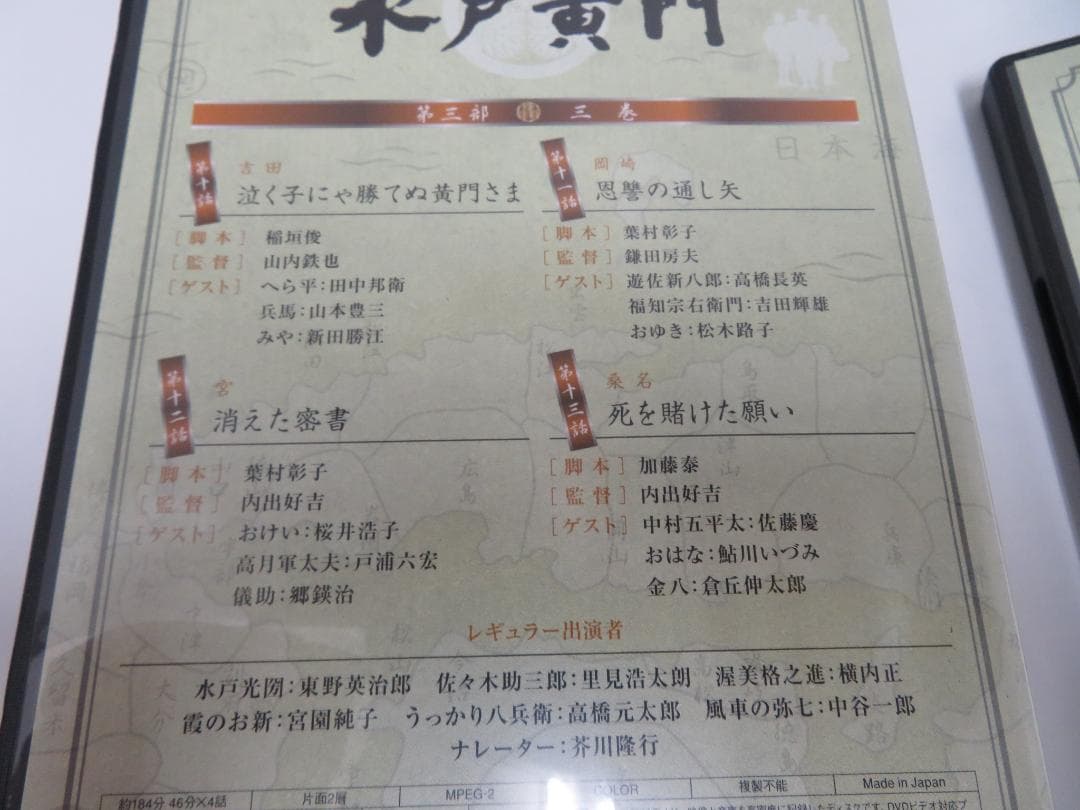 水戸黄門
第三部 三巻
第十話 吉田
泣く子にゃ勝てぬ黄門さま
[脚本] 稲垣俊
[監督] 山内鉄也
[ゲスト] へら平:田中邦衛
兵馬:山本豊三
みや:新田勝江
第十一話 岡崎
恩讐の通し矢
[脚本] 葉村彰子
[監督] 鎌田房夫
[ゲスト] 遊佐新八郎:高橋長英
福知宗右衛門:吉田輝雄
おゆき:松木路子
第十二話 宮
消えた密書
[脚本] 葉村彰子
[監督] 内出好吉
[ゲスト] おけい:桜井浩子
高月軍太夫:戸浦六宏
儀助:郷鍈治
第十三話 桑名
死を賭けた願い
[脚本] 加藤泰
[監督] 内出好吉
[ゲスト] 中村五平太:佐藤慶
おはな:鮎川いづみ
金八:倉丘伸太郎
レギュラー出演者
水戸光圀:東野英治郎 佐々木助三郎:里見浩太朗 渥美格之進:横内正
霞のお新:宮園純子 うっかり八兵衛:高橋元太郎 風車の弥七:中谷一郎
ナレーター:芥川隆行
約184分 46分×4話 片面2層 MPEG-2 COLOR 複製不能 Made in Japan
日本海
広島
兵庫